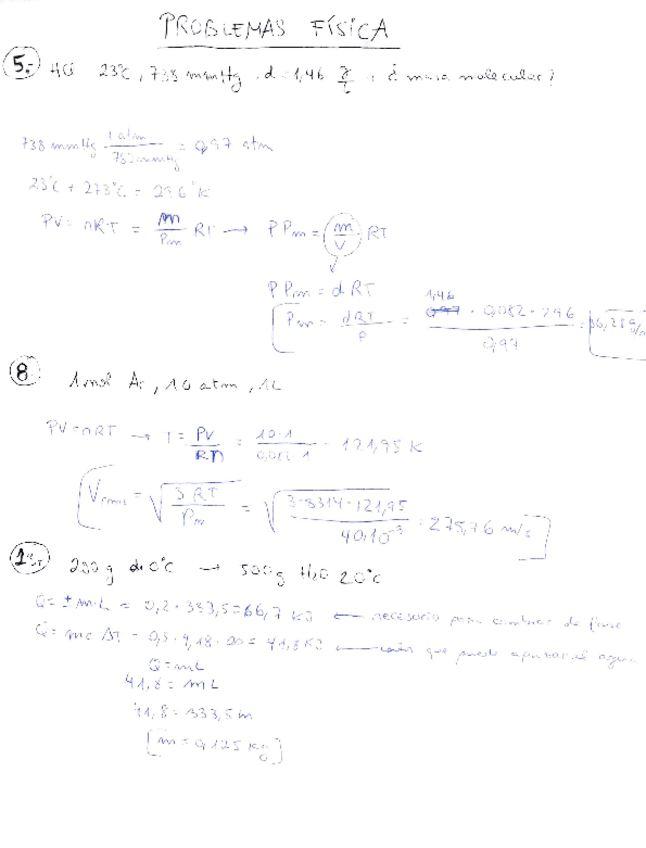 PROBLEMAS FÍSICA
5.- HCl 23°C, 738 mmHg, d=1,46 g/L ¿ masa molecular?
738 mmHg · 1 atm / 760 mmHg = 0,97 atm
23°C + 273°C = 296°K
PV = nRT = m/Pm RT → P Pm = (m/V) RT
P Pm = d RT
1,46
Pm = dRT/P = · 0,082 · 296 / 0,97 = 36,28 g/
8. 1 mol Ar, 10 atm, 1L
PV = nRT → T = PV/Rn = 10·1 / 0,082·1 = 121,95 K
= √(3RT/Pm) = √(3·8314·121,95 / 40·10⁻³) = 275,76 m/s
200 g de 0°C → 500 g H₂O 20°C
Q = ± m·L = 0,2 · 333,5 = 66,7 KJ ← necesario para cambiar de fase
Q = mc ΔT = 0,5 · 4,18 · 20 = 41,8 KJ ← calor que puede aportar el agua
Q = mL
41,8 = mL
41,8 = 333,5 m
[m = 0,125 Kg]